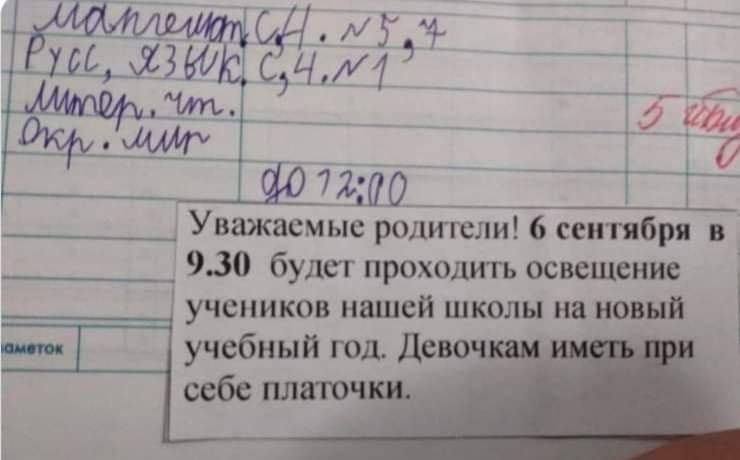 Математ. С,4. №5,7
Русс, язык. С,4. №1
Литер. чт.
Окр. мир
до 12:00
5
Уважаемые родители! 6 сентября в
9.30 будет проходить освещение
учеников нашей школы на новый
учебный год. Девочкам иметь при
себе платочки.
аметок